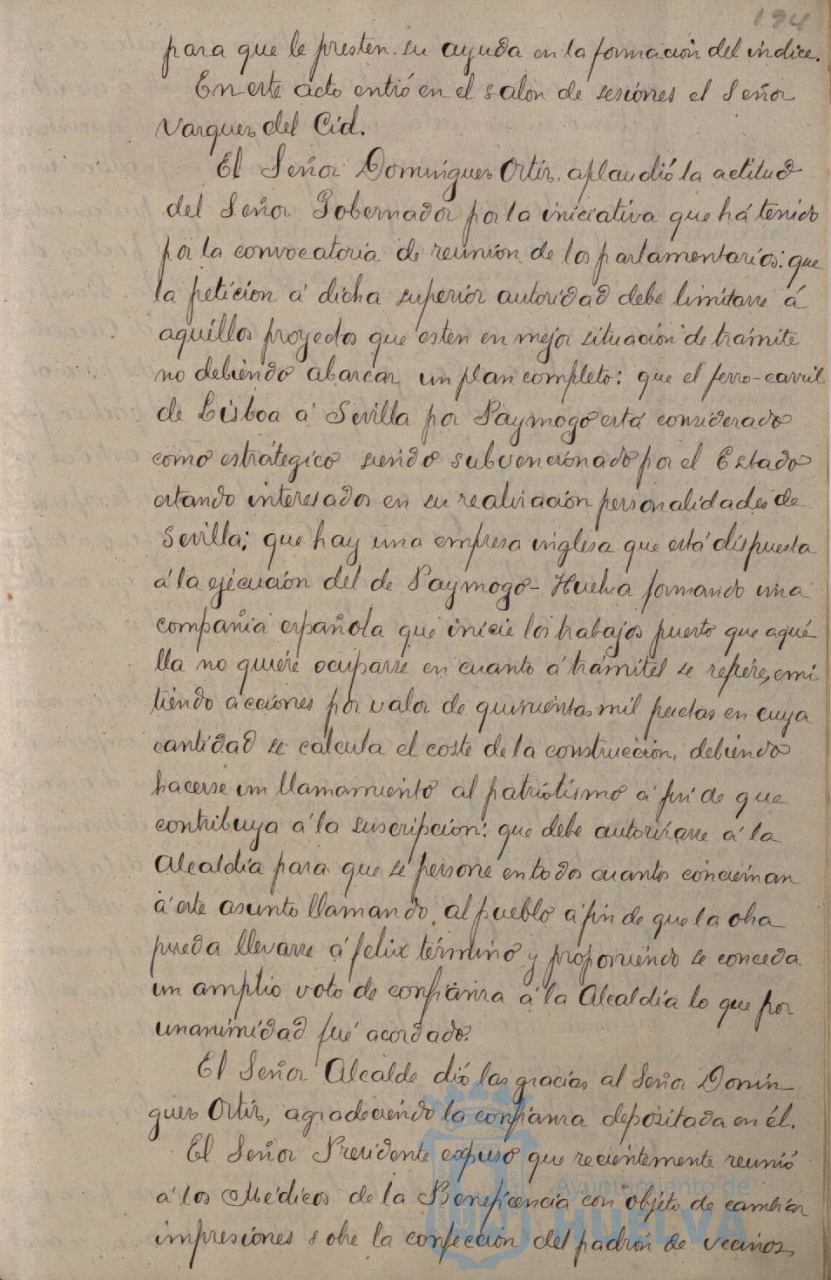 194
para que le presten su ayuda en la formación del indice.
En este acto entró en el salon de sesiónes el Señor
Varques del Cid.
El Señor Domingues Ortiz, aplaudió la actitud
del Señor Gobernador por la iniciativa que há tenido
por la convocatoria de reunión de los parlamentarios: que
la peticion á dicha superior autoridad debe limitarse á
aquéllos proyectos que esten en mejor situación de trámite
no debiendo abarcar un plan completo: que el ferro-carril
de Lisboa á Sevilla por Paymogo está considerado
como estrátegico siendo subvencionado por el Estado
estando interesados en su realización personalidades de
Sevilla; que hay una empresa inglesa que está dispuesta
á la ejecución del de Paymogo-Huelva formando una
compañia española que inicie los trabajos puesto que aqué
lla no quiére ocuparse en cuanto á trámites se refiere, emi
tiendo acciones por valor de quinientas mil pesetas en cuya
cantidad se calcula el coste de la construcción, debiendo
hacerse un llamamiento al patriótismo á fin de que
contribuya á la suscripción: que debe autorizarse á la
Alcaldía para que se persone en todos cuantos conciernan
á este asunto llamando al pueblo á fin de que la obra
pueda llevarse á felix término y proponiendo se conceda
un amplio voto de confianza á la Alcaldía lo que por
unanimidad fué acordado.
El Señor Alcalde dió las gracias al Señor Domin
gues Ortiz, agradeciendo la confianza depositada en él.
El Señor Presidente expuso que recientemente reunió
á los Médicos de la Beneficencia con objeto de cambiar
impresiones sobre la confección del padrón de vecinos,
Ayuntamiento de
HUELVA